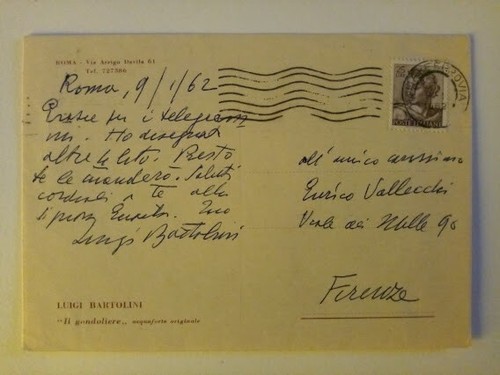 ROMA - Via Arrigo Davila 61
Tel. 727306
Roma, 9/1/62
Grazie per i telegram
mi. Ho disegnat
altre lito. Presto
te le manderò. Saluti
cordiali a te alla
Tuo
Luigi Bartolini
all'amico carissimo
Enrico Vallecchi
Viale dei Mille 90
Firenze
FERROVIA
POSTE ITALIANE
LUIGI BARTOLINI
"Il gondoliere„ acquaforte originale